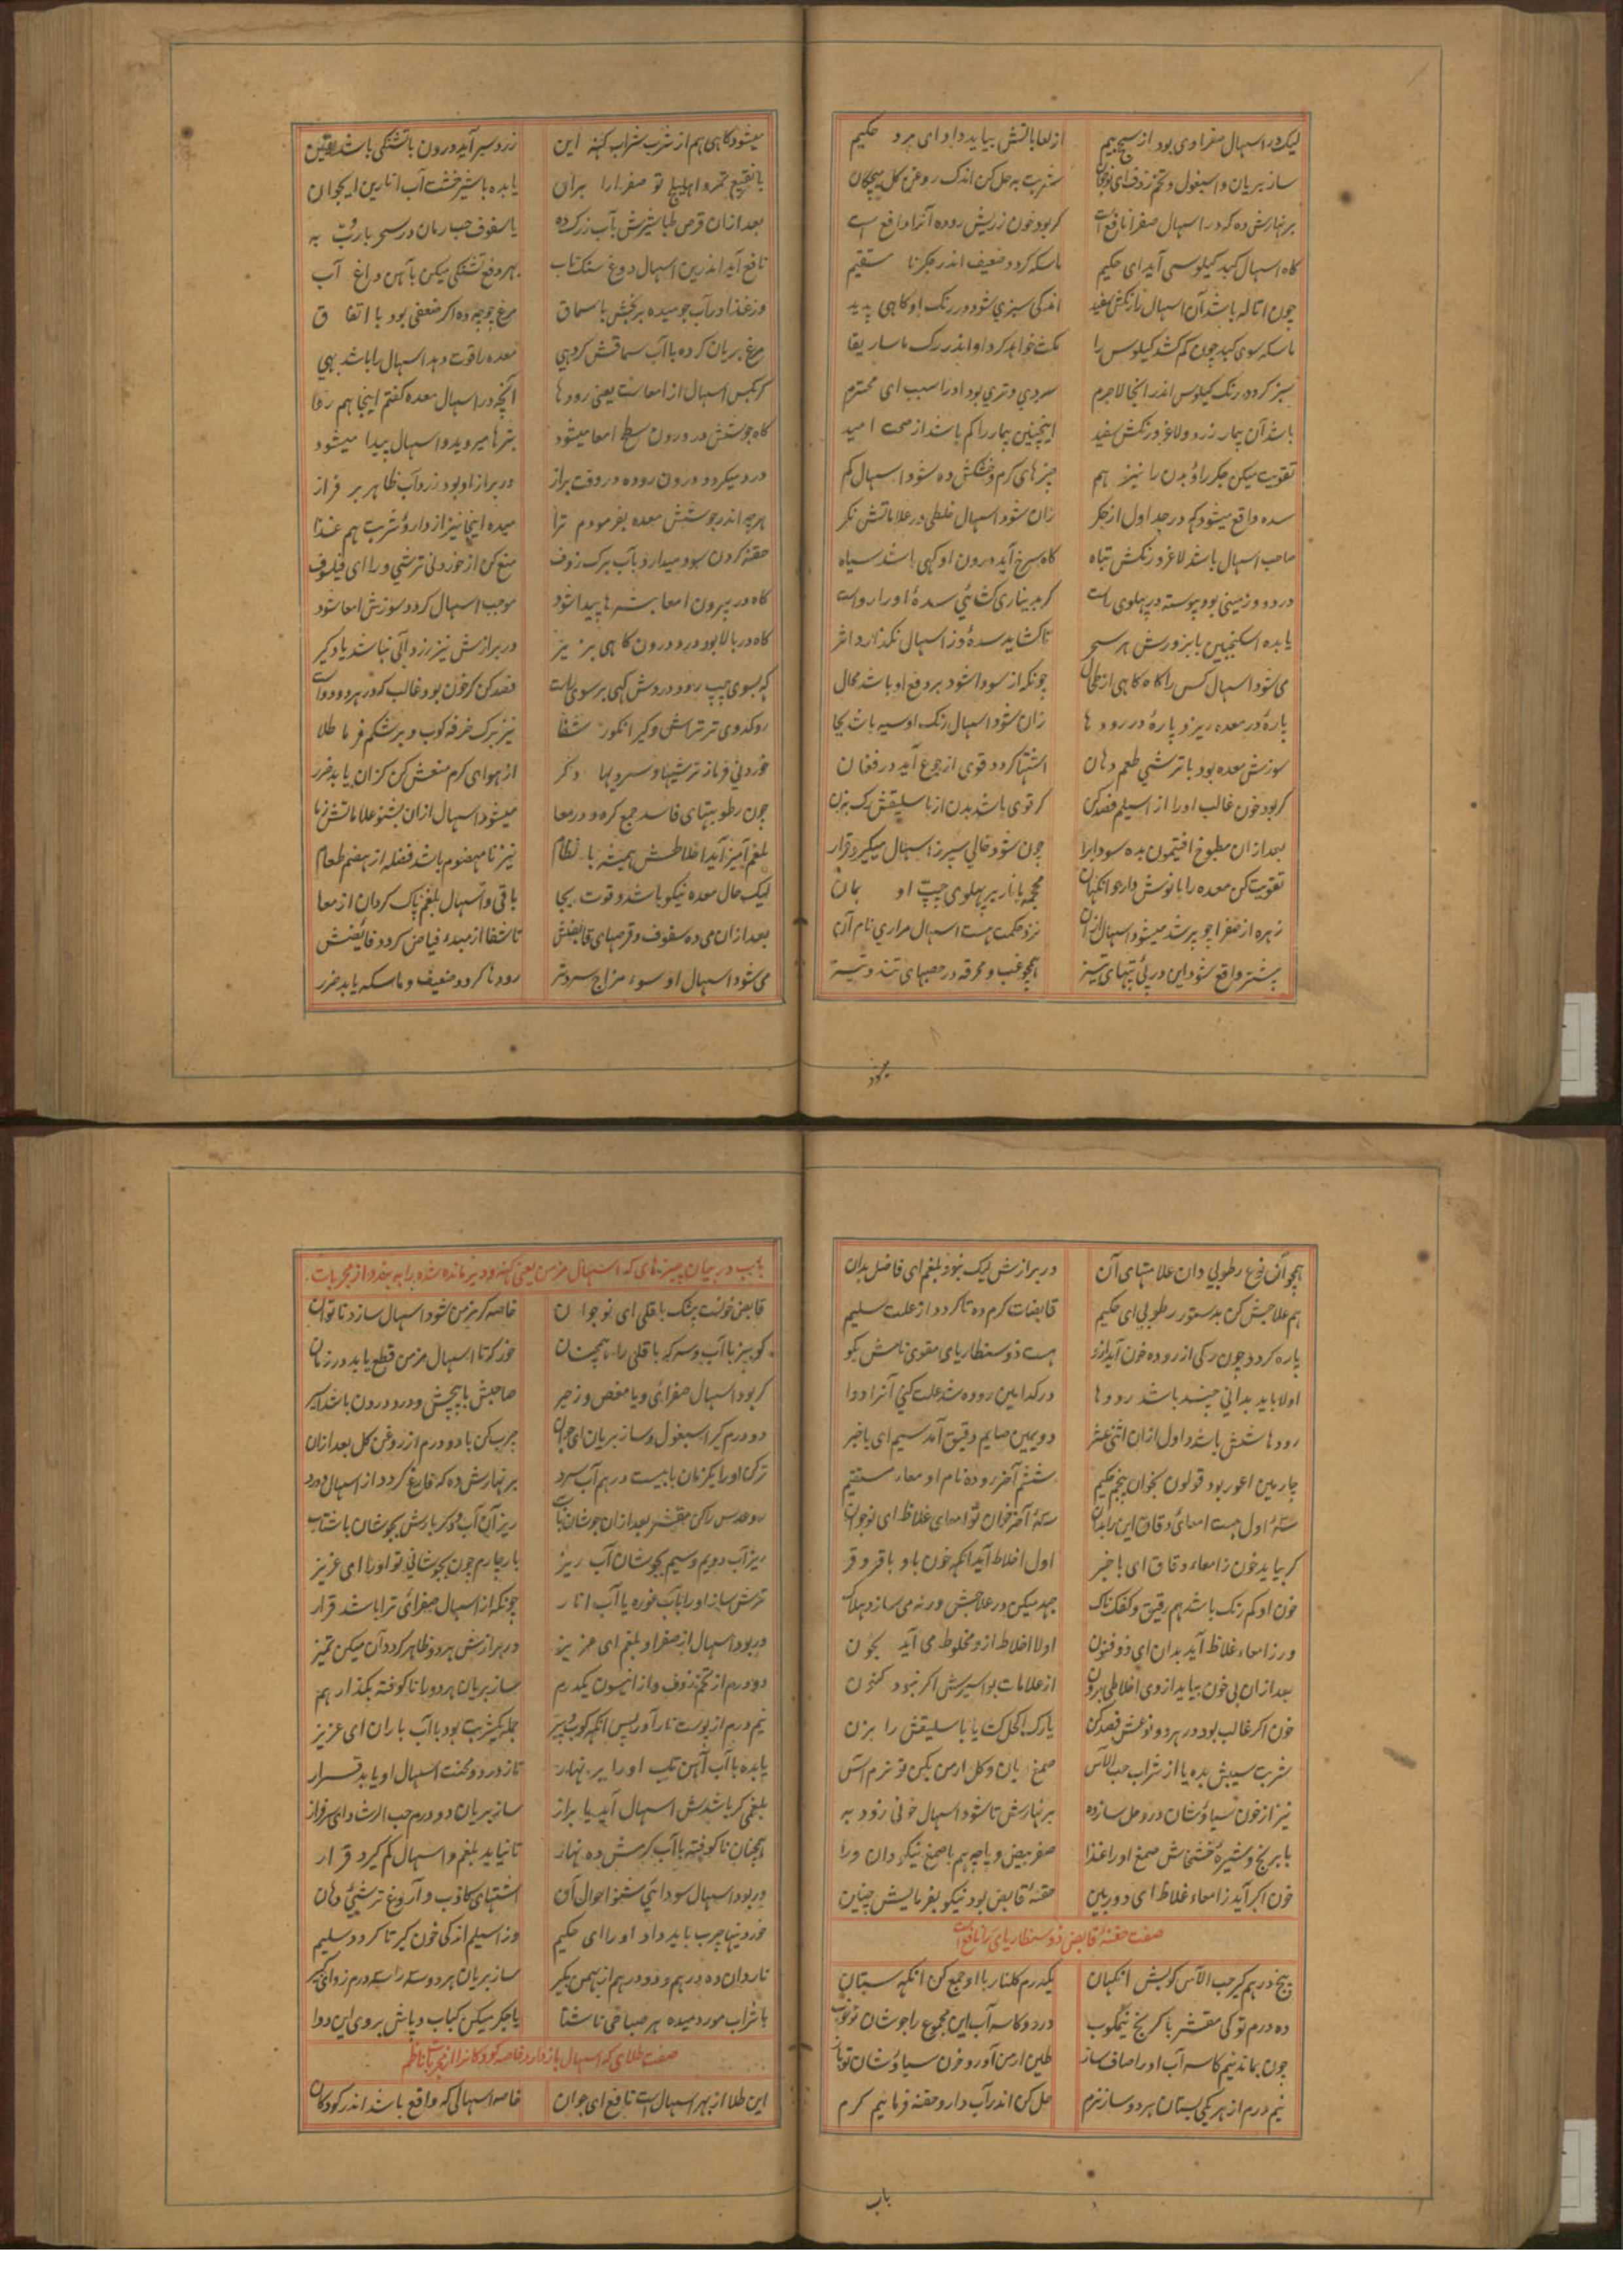 لیک در اسهال صفراوی بود از سحج بیم از لعاباتش بباید داد ای مرد حکیم
ساز بریان و اسبغول و تخم زوف ای نوجوان شربت به حل کن اندک روغن گل
بر نهارش ده که در اسهال صفرا نافع است گر بود خون زریش روده آنرا دافع است
گاه اسهال کبد کیلوسی آید ای حکیم ماسکه گردد ضعیف اندر جگر نا مستقیم
چون تاله باشد آن اسهال رنگش سفید اندکی سبزی شود در رنگ او گاهی پدید
ماسکه سوی کبد چون کم کشد کیلوس را مکث خواهد کرد او اندر رگ ماساریقا
سبز گردد رنگ کیلوس اندر آنجا لاجرم سردی و تری بود او را سبب ای محترم
باشد آن بیمار زرد و لاغر و رنگش سفید اینچنین بیمار را کم باشد از صحت امید
تقویت میکن جگر را و بدن را نیز هم چیزهای گرم و خشکش ده شود اسهال کم
سده واقع میشود گه در جداول از جگر زان شود اسهال خلطی در علاماتش نگر
صاحب اسهال باشد لاغر و رنگش تباه گاه سرخ آید درون او گهی باشد سیاه
درد و وزمینی بود پیوسته در پهلوی راست گر میسر آری گشائی سدهٔ او را رواست
یا بده اسکنجبین یا بزورش هر سحر تا گشاید سده وز اسهال نگذارد اثر
می شود اسهال کس را گاه گاهی از طحال چونکه از سودا شود بر دفع او باشد محال
پارهٔ در معده ریزد پارهٔ در رودها زان شود اسهال رنگ او سیه باشد بجا
سوزش معده بود با ترشی طعم دهان اشتها گردد قوی از جوع آید در فغان
گر بود خون غالب او را از اسیلم فصد کن گر قوی باشد بدن از باسلیقش رگ بزن
بعد ازان مطبوخ افتیمون بده سودا برا چون شود خالی سپرز اسهال میگیرد قرار
تقویت کن معده را با نوشدارو انگهان محجمه با نار بر پهلوی چپ او بمان
زهره از صفرا چو پر شد میشود اسهال ازان نزد حکمت هست اسهال مراری نام آن
بیشتر واقع شود این در پی تپهای تیز همچو غب و محرقه در حصبهای تند و نیز
میشود
میشود گاهی هم از شرب شراب کهنه این زرد سبز آید درون با تشنگی باشد یقین
با نقیع تمر و اهلیلج تو صفرا را بران یا بده با شیرخشت آب انارین ای جوان
بعد ازان قرص طباشیرش بآب زر کرده یا سفوف حب رمان در سحر با رب به
نافع آید اندرین اسهال دوغ سنگ تاب بهر دفع تشنگی میکن بآهن داغ آب
وز غذا در آب جو میده برنجش با سماق مرغ جوجه ده اگر ضعفی بود با اتفاق
مرغ بریان کرده با آب سماقش گر دهی معده را قوت دهد اسهال را باشد بهی
گر بکس اسهال از امعاست یعنی رودها آنچه در اسهال معده گفتم اینجا هم روا
گاه جوشش در درون سطح امعا میشود بثرها میروید و اسهال پیدا میشود
درد میگردد درون روده در وقت براز در براز او بود زرد آب ظاهر بر فراز
هرچه اندر جوشش معده بفرمودم ترا میده اینجا نیز از دارو و شربت هم غذا
حقنه کردن سود میدارد بآب برگ زوف منع کن از خوردنی ترشی ورا ای فیلسوف
گاه در بیرون امعا بثرها پیدا شود موجب اسهال گردد سوزش امعا شود
گاه در بالا بود درد درون گاهی بزیر در برازش نیز زرد آبی نباشد یاد گیر
گه بسوی چپ رود دردش گهی بر سوی راست فصد کن گر خون بود غالب که در هر دو دواست
رو کدوی تر تراش و گیر انگور شفا نیز برگ خرفه کوب و بر شکم فرما طلا
خوردنی فرما ز ترشیها و سردیها دگر از هوای گرم منعش کن کزان یابد ضرر
چون رطوبتهای فاسد جمع گردد در معا میشود اسهال ازان بشنو علاماتش ز ما
بلغم آمیز آید اخلاطش همیشه با نظام نیز نا مهضوم باشد فضله از هضم طعام
لیک حال معده نیکو باشد و قوت بجا باقی و اسهال بلغم پاک گردان از معا
بعد ازان می ده سفوف و قرصهای قابضش تا شفا از مبدء فیاض گردد فائضش
می شود اسهال او سوء مزاج سرد تر رودها گردد ضعیف و ماسکه یابد ضرر
همچو آن نوع رطوبی دان علامتهای آن در برازش لیک نبود بلغم ای فاضل بدان
هم علاجش کن بدستور رطوبی ای حکیم قابضات گرم ده تا گردد از علت سلیم
پاره گردد چون رگی از روده خون آید ازو هست ذوسنطاریای معوی نامش بگو
اولا باید بدانی چند باشد رودها در کدامین روده شد علت کنی آنرا دوا
رودها شش باشد و اول ازان اثنی عشر دویمین صایم دقیق آمد سیم ای باخبر
چارمین اعور بود قولون بخوان پنجم حکیم ششم آخر روده نام او معاء مستقیم
سهٔ اول هست امعای دقاق این را بدان سهٔ آخر خوان تو امعای غلاظ ای نوجوان
گر بیاید خون ز امعاء دقاق ای باخبر اول اخلاط آید انگه خون باد با قرقر
خون او کم رنگ باشد هم رقیق و کفکناک جهد میکن در علاجش ورنه می سازد هلاک
ور ز امعاء غلاظ آید بدان ای ذوفنون اولا اخلاط از و مخلوط می آید بخون
بعد ازان بی خون بیاید از وی اخلاطی برون از علامات بواسیرش اگر نبود کنون
خون اگر غالب بود در هر دو نوعش فصد کن یا رگ اکحل گشا یا باسلیقش را بزن
شربت سیبش بده یا از شراب حب الآس صمغ بریان و گل ارمن بکن تو نرم آس
نیز از خون سیاوشان درو حل ساز ده بر نهارش تا شود اسهال خونی زود به
با برنج و شیرهٔ خشخاش صمغ او را غذا صفر بیض و پاچه هم با صمغ نیکو دان ورا
خون اگر آید ز امعاء غلاظ ای دوربین حقنهٔ قابض بود نیکو بفرمایش چنین
صفت حقنهٔ قابض ذوسنطاریای را نافع است
پنج درهم گیر حب الآس کوبش انگهان یکدرم گلنار با او جمع کن انگه ستان
ده درم تو کی مقشر با کرنج نیمکوب در دو کاسه آب این مجموع را جوشان تو خوب
چون بماند نیم کاسه آب او را صاف ساز طین ارمن آور و خون سیاوشان تو باز
نیم درم از هر یکی بستان هر دو ساز نرم حل کن اندر آب دارو حقنه فرما نیم گرم
باب
باب در بیان چیزهای که اسهال مزمن یعنی کهنه و دیر مانده شده را ببندد از مجربات
قابض خونست پشک باقلی ای نوجوان خاصه گر مزمن شود اسهال سازد ناتوان
گو بپز با آب و سرکه باقلی را همچنان خور که تا اسهال مزمن قطع یابد در زمان
گر بود اسهال صفرائی و با مغص و زحیر صاحبش با پیچش و درد درون باشد اسیر
دو درم گیر اسبغول و ساز بریان ای جوان چرب کن با دو درم از روغن گل بعد ازان
تر کن او را یکزمان با بیست درهم آب سرد بر نهارش ده که فارغ گردد از اسهال و درد
رو عدس را کن مقشر بعد ازان جوشان بآب ریز آن آب و دگر بارش بجوشان با شتاب
ریز آب دویم و سیم بجوشان آب ریز بار چارم چون بجوشانی تو او را ای عزیز
ترش ساز او را بآب غوره یا آب انار چونکه از اسهال صفرائی ترا باشد قرار
ور بود اسهال از صفرا و بلغم ای عزیز در برازش هر دو ظاهر گردد آن میکن تمیز
دو درم از تخم زوف و از انیسون یکدرم ساز بریان هر دو را ناکوفته بگذار هم
نیم درم از پوست نار آور پس انگه کوب و بیز جمله یکشربت بود با آب باران ای عزیز
یا بده با آب آهن تاب او را بر نهار تا ز درد و محنت اسهال او یابد قرار
بلغمی گر باشدش اسهال آید با براز ساز بریان دو درم حب الرشاد ای سرفراز
همچنان ناکوفته با آب گرمش ده نهار تا نیاید بلغم و اسهال کم گیرد قرار
ور بود اسهال سودائی شنو احوال آن اشتهای کاذب و آروغ ترشی دهان
خوردنیها چرب باید داد او را ای حکیم وز اسیلم اندکی خون گیر تا گردد سلیم
ناردان ده درهم و دو درهم از بهمن بگیر ساز بریان هر دو
با شراب مورد میده هر صباحی ناشتا یا جگر میکن کباب و پاش بر وی این دوا
صفت طلای که اسهال باز دارد خاصه کودکانرا از مجربات ناظم
این طلا از بهر اسهال است نافع ای جوان خاصه اسهالی که واقع باشد اندر کودکان